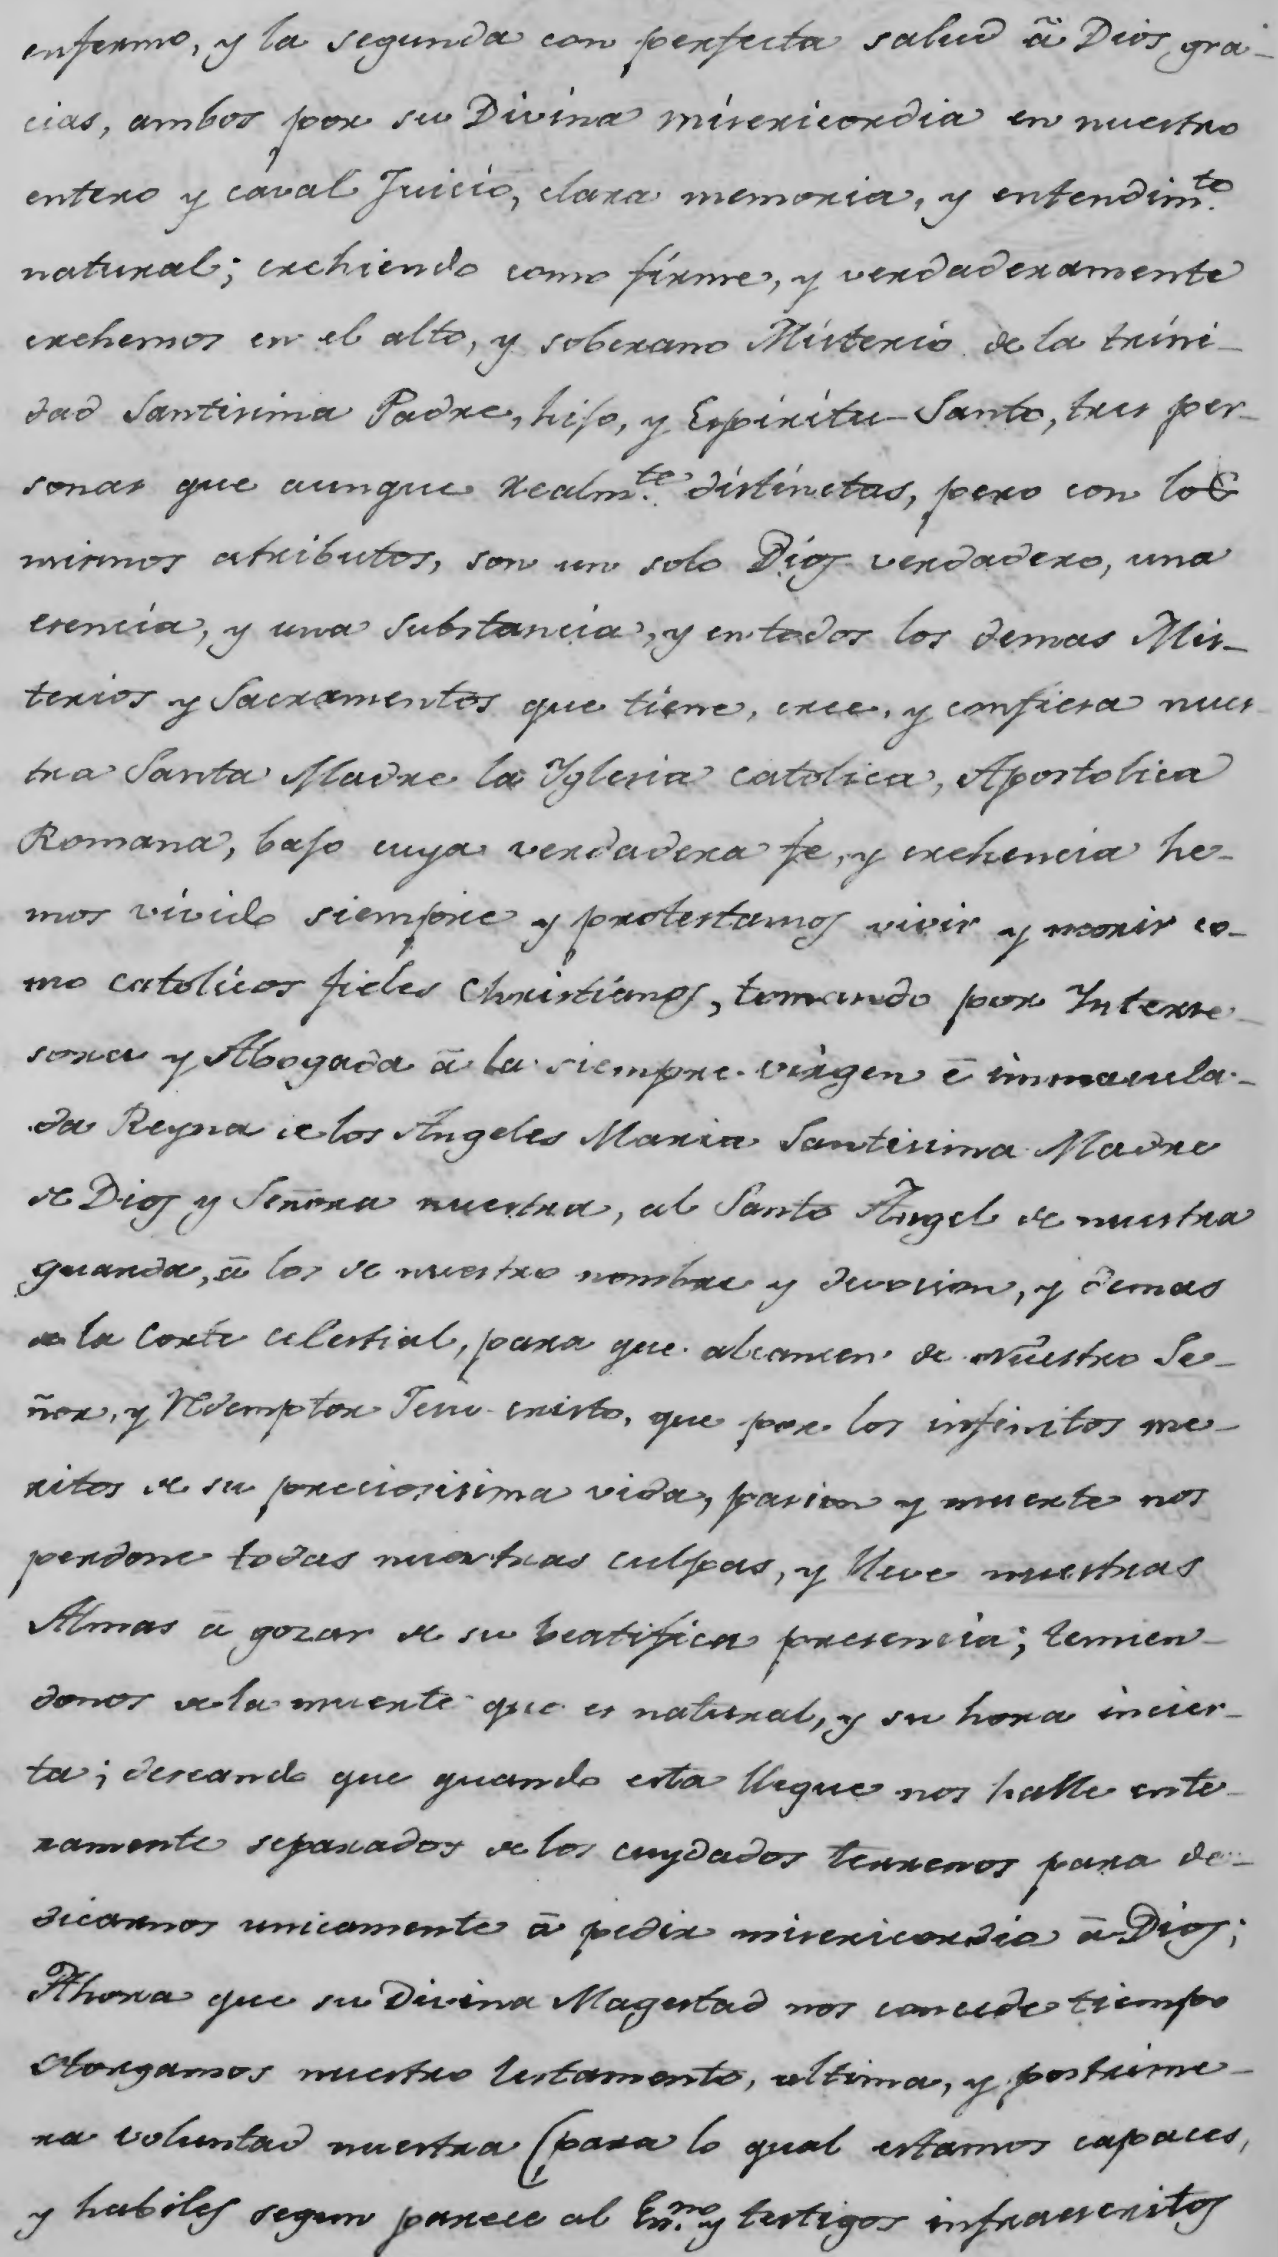 enfermo, y la segunda con perfecta salud â Dios gra-
cias, ambos por su Divina misericordia en nuestro
entero y caval Juicio, clara memoria, y entendim.to
natural; crehiendo como firme, y verdaderamente
crehemos en el alto, y soberano Misterio de la trini-
dad Santisima Padre, hijo, y Espiritu Santo, tres per-
sonas que aunque realm.te distinctas, pero con los
mismos atributos, son un solo Dios verdadero, una
esencia, y una substancia, y en todos los demas Mis-
terios y Sacramentos que tiene, cree, y confiesa nues-
tra Santa Madre la Yglesia catolica, Apostolica
Romana, bajo cuya verdadera fe, y crehencia he-
mos vivido siempre y protestamos vivir y morir co-
mo catolicos fieles Christianos, tomando por Yntersve-
sora y Abogada â la siempre virgen ê immacula-
da Reyna de los Angeles Maria Santisima Madre
de Dios y Señora nuestra, al Santo Angel de nuestra
guarda, â los de nuestro nombre y devocion, y demas
de la Corte celestial, para que alcancen de Nuestro Se-
ñor, y Redemptor Jesu cristo, que por los infinitos me-
ritos de su preciosisima vida, pasion y muerte nos
perdone todas nuestras culpas, y lleve nuestras
Almas â gozar de su beatifica presencia; temien-
donos de la muerte que es natural, y su hora incier-
ta; deseando que quando esta llegue nos halle ente-
ramente separados de los cuydados terrenos para de-
dicarnos unicamente â pedir misericordia â Dios;
Ahora que su Divina Magestad nos concede tiempo
otorgamos nuestro testamento, ultima, y postrime-
ra voluntad nuestra (para lo qual estamos capaces,
y habiles segun parece al Es.no y testigos infraescritos